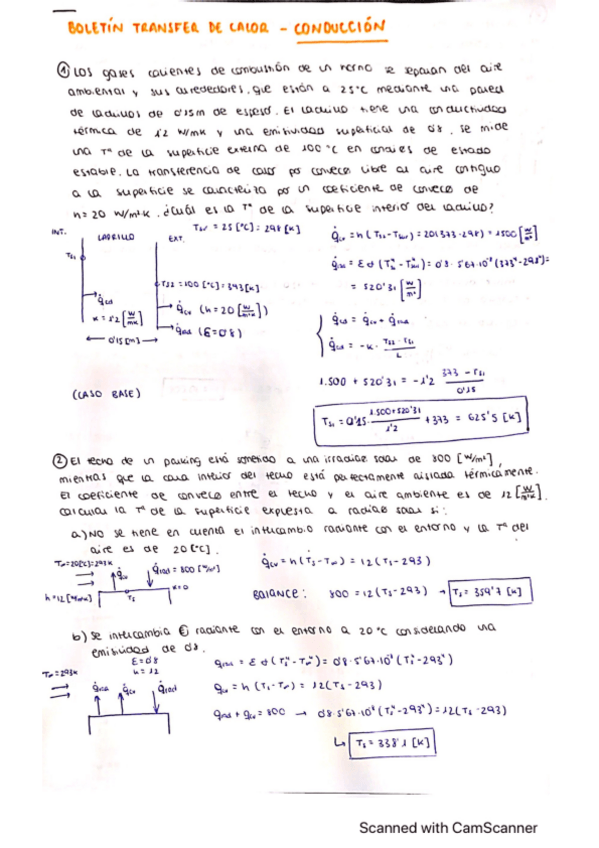 BOLETÍN TRANSFER DE CALOR - CONDUCCIÓN
① Los gases calientes de combustión de un horno se separan del aire
ambiental y sus alrededores, que están a 25°C mediante una pared
de ladrillos de 0'15m de espesor. El ladrillo tiene una conductividad
térmica de 1'2 W/mK y una emisividad superficial de 0'8. Se mide
una Tª de la superficie externa de 100°C en condiciones de estado
estable. La transferencia de calor por convecc libre al aire contiguo
a la superficie se caracteriza por un coeficiente de convecc de
h=20 W/m²K. ¿Cuál es la Tª de la superficie interior del ladrillo?
INT. LADRILLO EXT.
= 25 [°C] = 298 [K]
TS2=100 [°C]=373[K]
q̇cd
k=1'2 [W/mK]
q̇cv (h=20 [W/m²K])
q̇rad (ε=0'8)
0'15[m]
(CASO BASE)
q̇cv = h (Ts2-Tsur) = 20(373-298) = 1500 [W/m²]
= 520'31 [W/m²]
q̇cd = q̇cv + q̇rad
q̇cd = -k · (Ts2 - Ts1)/L
1.500 + 520'31 = -1'2 (373 - Ts1)/0'15
Ts1 = 0'15 · (1.500+520'31)/1'2 + 373 = 625'5 [K]
② El techo de un parking está sometido a una irradiac solar de 800 [W/m²],
mientras que la cara interior del techo está perfectamente aislada térmicamente.
El coeficiente de convecc entre el techo y el aire ambiente es de 12 [W/m²K].
calcular la Tª de la superficie expuesta a radiac solar si:
a) No se tiene en cuenta el intercambio radiante con el entorno y la Tª del
aire es de 20 [°C].
T∞=20[°C]=293K
q̇cv
q̇rad = 800 [W/m²]
h=12 [W/m²K]
Ts
q̇cv = h (Ts-T∞) = 12 (Ts-293)
BALANCE: 800 = 12 (Ts-293) → Ts = 359'7 [K]
b) Se intercambia Ⓔ radiante con el entorno a 20°C considerando una
emisividad de 0'8.
T∞=293K
ε=0'8
h=12
q̇rad q̇cv q̇rad
q̇rad = ε σ (Ts⁴ - T∞⁴) = 0'8·5'67·10⁻⁸ (Ts⁴-293⁴)
q̇cv = h (Ts-T∞) = 12 (Ts-293)
q̇rad + q̇cv = 800 → 0'8·5'67·10⁻⁸ (Ts⁴-293⁴) = 12 (Ts-293)
↳ Ts = 338'1 [K]
Scanned with CamScanner